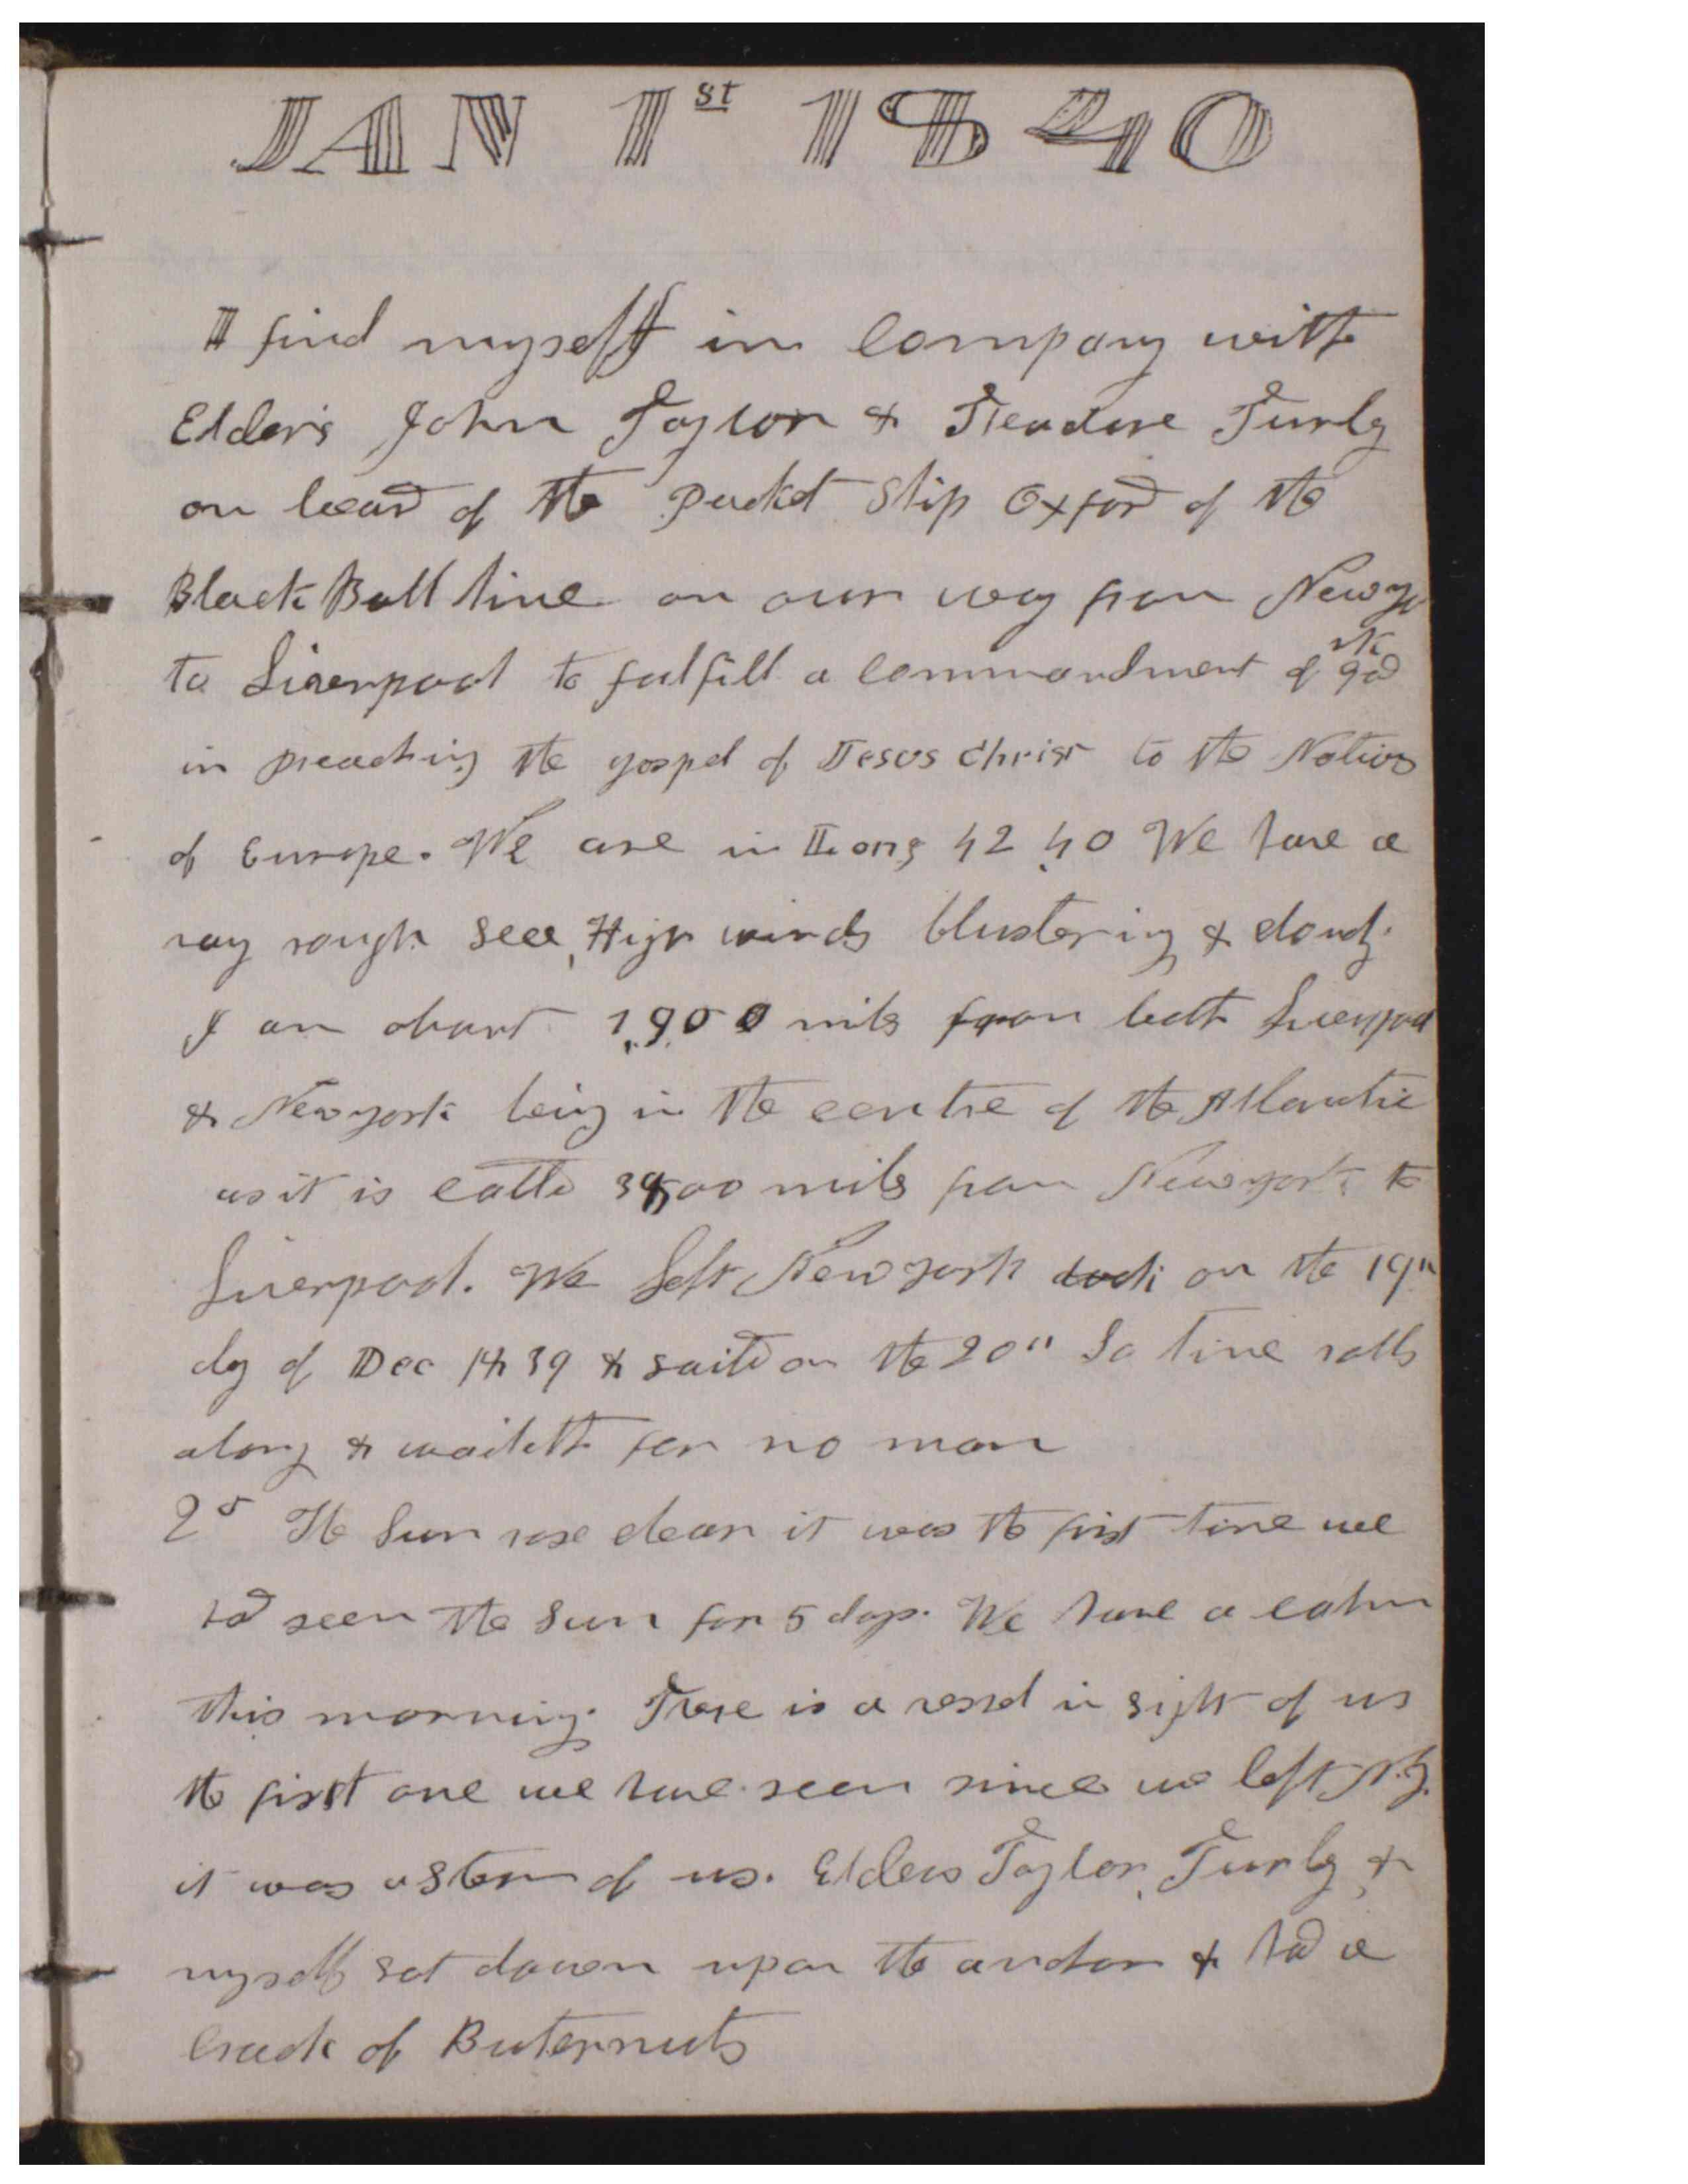 JAN 1st 1840
I find myself in company with
Elders John Taylor & Theadore Turly
on board of the Packet Ship Oxford of the
Black Ball line on our way from New yo
rk
to Liverpool to fulfill a commandment of god
in preaching the gospel of Jesus Christ to the Nations
of Europe. We are in Long 42 40 We have a
vary rough see, High winds blustering & cloudy.
I am about 1,900 miles from both Liverpool
& New york being in the centre of the Atlantic
as it is called 3800 miles from New york to
Liverpool. We left New york dock on the 19th
day of Dec 1839 & sailed on the 20" So time rolls
along & waiteth for no man
2d The Sun rose clear it was the first time we
had seen the Sun for 5 days. We have a calm
this morning. There is a vessel in sight of us
the first one we have seen since we left N.Y.
it was astern of us. Elders Taylor, Turly, &
myself sat down upon the anchor & had a
Crack of Buternuts